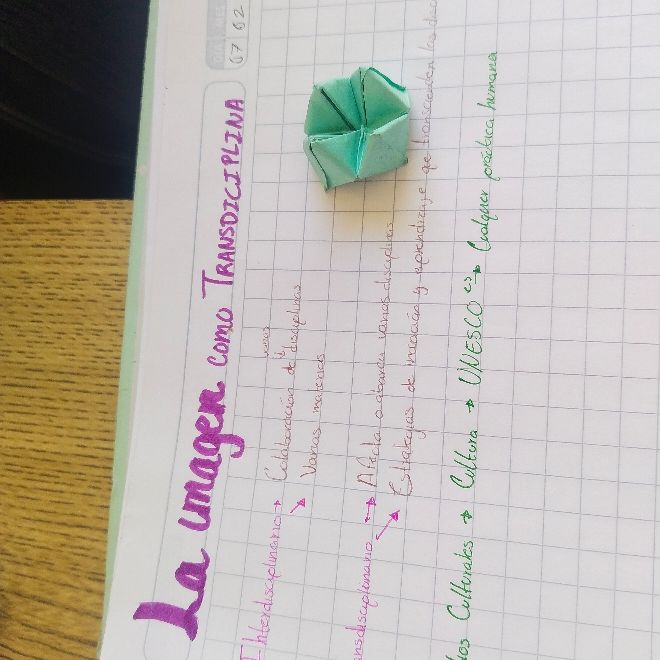 DIA MES
07 02
La imagen como TRANSDICIPLINA
Interdisciplinario → Colaboración de varias disciplinas
→ Varias materias
ansdisciplinario → Afecta o abarca varias disciplinas
→ Estrategias de iniciación y aprendizaje que transcienden las
dios Culturales → Cultura → UNESCO es → Cualquier práctica humana